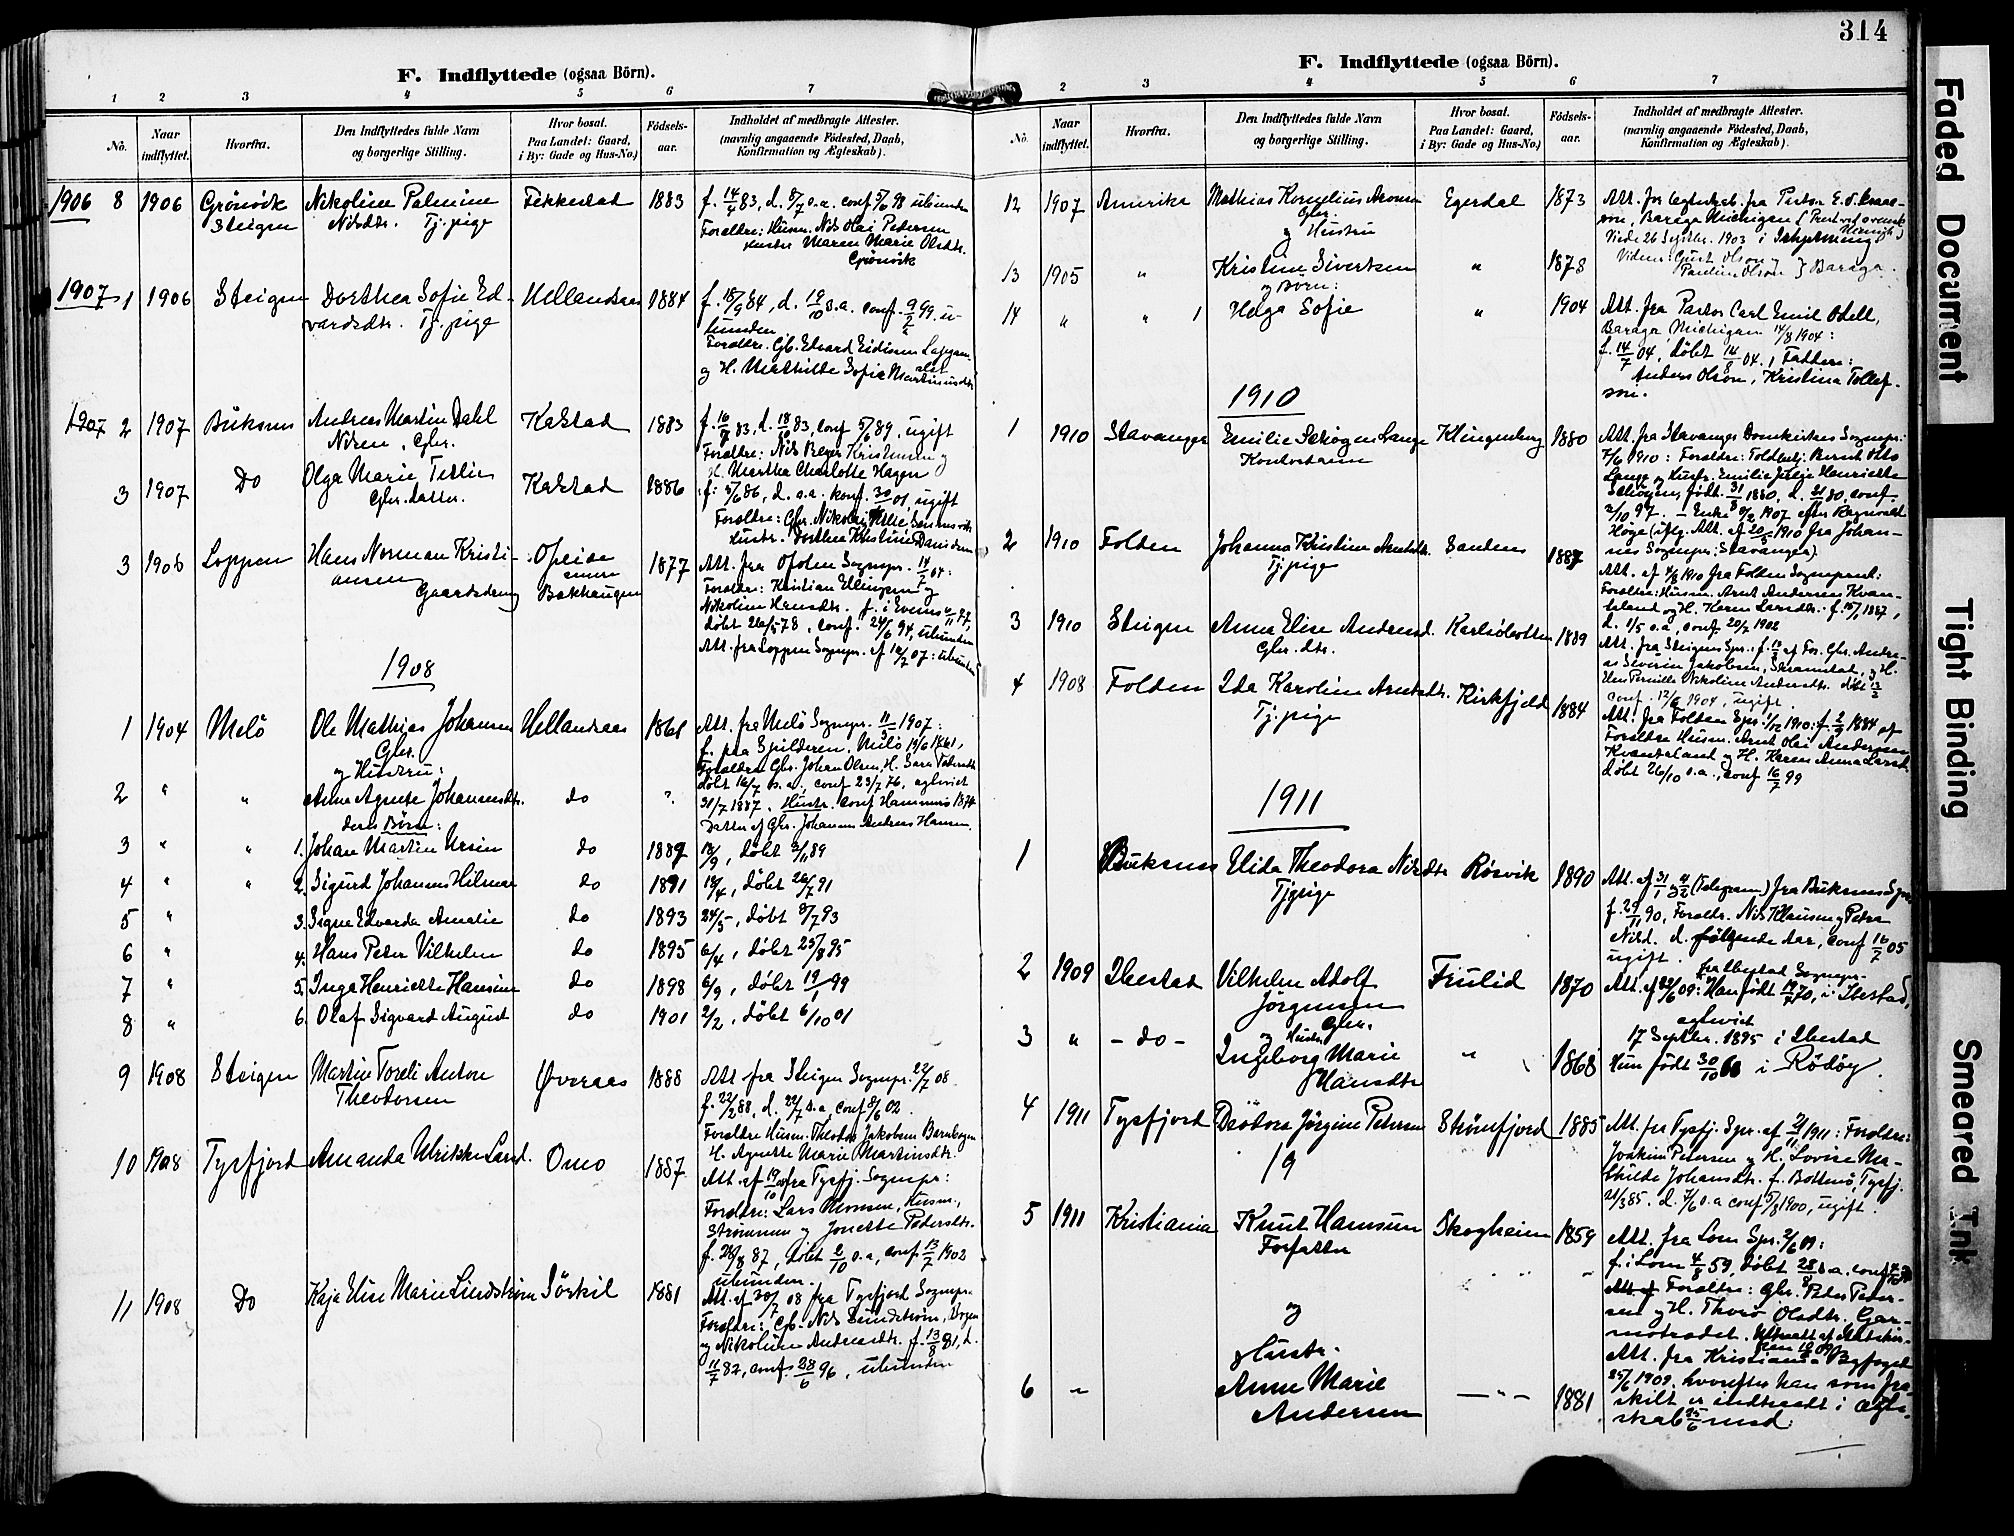 314
F. Indflyttede (ogsaa Börn).
1 2 3 4 5 6 7
No. Naar indflyttet. Hvorfra. Den Indflyttedes fulde Navn og borgerlige Stilling. Hvor bosat. Paa Landet: Gaard, i By: Gade og Hus-No.) Fødsels-aar. Indholdet af medbragte Attester. (navnlig angaaende Födested, Daab, Konfirmation og Ægteskab).
1906 8 1906 Grönvik Steigen Nikoline Palmine Nilsdtr. Tj. pige Fikkestad 1883 f. 14/4 83, d. 8/7 s.a. conf 5/6 98 ubunden
Foraldre: Husm. Nils Olai Pedersen
Hustr. Maren Marie Olsdtr.
Grönvik
1907 1 1906 Steigen Dorthea Sofie Edvardsdtr. Tj. pige Hellandsaas 1884 f. 18/9 84, d. 19/10 s.a. conf. 9/7 99. ubunden
Foraldre. Gb. Edvard Eidissen
og H. Mathilde Sofie Martinusdtr
1907 2 1907 Buksnes Andreas Martin Dahl Nilsen, Gbr. Kalstad 1883 f. 16/8 83, d. 18/10 83, conf 5/6 89, ugift
Foraldre: Nils Beyer Kristensen og
H. Martha Charlotte Hagen
3 1907 Do Olga Marie Tetlie Gbr. datter. Kalstad 1886 f. 5/6 86, d. s.a. konf. 30/6 01, ugift
Foraldre: Gbr. Nikolai
Hustr. Dorthea Kristine Danielsen
3 1906 Loppen Hans Norman Kristiansen Gaardsdreng Opeide Bakhaugen 1877 Att. fra Ofoten Sognepr. 14/7 04:
Foraldre: Kristian Ellingsen og
Nikoline Hansdtr. f. i Evenes 4/11 77,
döbt 26/5 78, conf. 24/6 94, ubunden
Att. fra Loppen Sognepr. af 12/7 07: ubunden
1908
1 1904 Melö Ole Mathias Johansen Gbr. og Hustru: Hellandsaas 1861 Att. fra Melö Sognepr. 11/3 1907:
f. paa Spilderen. Melö 19/6 1861,
Foraldre Gbr. Johan Olsen, H. Sara
döbt 16/7 s.a., conf 23/7 76, aegteviet
2 " " Anne Agnete Johansdtr. do ? 31/7 1887. Hustr. conf Hammerö 1874
deres Börn: Datter af Gbr. Johannes Andreas Hansen.
3 " " 1. Johan Martin Ursin do 1889 18/9, döbt 3/11 89
4 " " 2. Sigurd Johannes Hilmar do 1891 19/4, döbt 26/7 91
5 " 3. Signe Edvarda Amalie do 1893 24/5, döbt 8/7 93
6 " 4. Hans Peter Vilhelm do 1895 6/4, döbt 25/8 95
7 " 5. Inga Henriette Hansine do 1898 6/9, döbt 19/1 99
8 " 6. Olaf Sigvard August do 1901 2/2, döbt 6/10 01
9 1908 Steigen Martin Toreli Anton Theodorsen Øveraas 1888 Att. fra Steigen Sognepr. 22/7 08.
f. 22/2 88, d. 22/7 s.a, conf 8/6 02.
Foraldre Husm. Theodor Jakobsen
H. Agnette Marie Martinsdtr.
10 1908 Tysfjord Amanda Ulrikke Larsd. Omo 1887 Att. af 19/10 fra Tysfj. Sognepr:
Foraldre: Lars Monsen, Husm.,
Strömmen og Jonette Pedersdtr.
f. 28/8 87, döbt 2/10 s.a., conf 13/7 1902
ubunden.
11 1908 Do Kaja Elise Marie Lindström Sörkil 1881 Att. af 30/7 08 fra Tysfjord Sognepr.
Foraldre: Gb. Nils Lindström,
og Nikoline Andreasdtr. f. 13/8 81, d.
11/7 82, conf. 28/6 96, ubunden
F. Indflyttede (ogsaa Börn).
2 3 4 5 6 7
No. Naar indflyttet. Hvorfra. Den Indflyttedes fulde Navn og borgerlige Stilling. Hvor bosat. Paa Landet: Gaard, i By: Gade og Hus-No.) Fødsels-aar. Indholdet af medbragte Attester. (navnlig angaaende Födested, Daab, Konfirmation og Ægteskab).
12 1907 Amerika Mathias Kornelius Gbr. og Hustru Egerdal 1873 Att. for Ægteskab fra Pastor E. O.
Baraga Michigan
Viede 26 Septbr. 1903 i Ishpeming
13 1905 " Kristine Sivertsen og Börn: " 1878 Vidner: Olson
Pauline Olson } Baraga.
14 " " 1 Helga Sofie " 1904 Att. fra Pastor Carl Emil Odell,
Baraga Michigan 14/8 1904:
f. 14/7 04, döbt 14/8 04, Faddere:
Anders Olson, Kristina Tollefson.
1910
1 1910 Stavanger Emilie Schøgen Lange Kontordame Klingenberg 1880 Att. fra Stavanger Domkirkes Sognepr:
7/6 1910: Foraldre: Toldbetj. Bernt Otto
Lange og Hustr. Emilie Julie Henriette
Schögen, född. 31/ 1880, d. 80, conf.
3/10 97. – Enke 1907 efter Ragnvald
Høge (iflg. Att. af 20/5 1910 fra Johannes Sognepr: Stavanger)
2 1910 Folden Johanna Kristine Arntsdtr. Tj. pige Sandnes 1887 Att. af 4/8 1910 fra Folden Sogneprest:
Foraldre: Husm. Arnt Andersen Kvandeland og H. Karen Larsdtr. f. 15/1 1887,
d. 1/5 s.a, conf. 20/7 1902
3 1910 Steigen Anna Elise Andreasd. Gbr. dtr. Karlsöbotten 1889 Att. fra Steigens Spr.: f. af For. Gbr. Andreas Severin Jakobsen, og H.
Pernille Nikoline Andersdtr.
conf. 12/6 1904, ugift.
4 1908 Folden Ida Karoline Arntsdtr. Tj. pige Kirkfjeld 1884 Att. fra Folden Spr: 1/12 1910: f. 2/9 1884 af
Foraldre Husm. Arnt Olai Andersen
Kvandeland og H. Karen Anna Larsd.
döbt 26/10 s.a., conf 16/7 99
1911
1 Buksnes Elida Theodora Nilsdtr Tjpige Røsvik 1890 Att. af 31/1 og 4/2 (Telegram) fra Buksnes Spr.
f. 29/11 90, Foraldr. Nils Klausen og Petra
Nild. d. følgende Aar, conf 16/7 05
ugift.
2 1909 Ibestad Vilhelm Adolf Jörgensen Gbr. og Hustr. Frulid 1870 Att. af 22/6 09: fra Ibestad Sognepr. Han født 19/7 70, i Ibestad,
aegteviet
17 Septbr. 1895 i Ibestad
3 " – do – Ingeborg Marie Hansdtr " 1868 Hun född 30/10 68 i Rödöy.
4 1911 Tysfjord Deötora Jörgine Petersen Strömfjord 1885 Att. fra Tysfj. Spr. af 2/11 1911: Foraldre:
19 Joakim Petersen og H. Lovise Mathilde Johansdtr. f. Botnnö, Tysfj.
21/3 85. d. 7/6 s.a conf 5/8 1900, ugift.
5 1911 Kristiania Knut Hamsun Forfatter Skogheim 1859 Att. fra Lom Spr. 2/6 09:
f. i Lom 4/8 59, döbt 28/8 s.a. conf
Foraldre: Gbr. Peter Pedersen og H. Thora Olsdtr. Garmotrædet. Udtraadt af Statskirken
Att. fra Kristiania Byfoged
og Hustr.
6 – Anne Marie Andersen – " – 1881 25/6 1909. hvorefter han som fraskilt er indtraadt i Ægteskab 25/6 med
Faded Document
Tight Binding
Smeared Ink